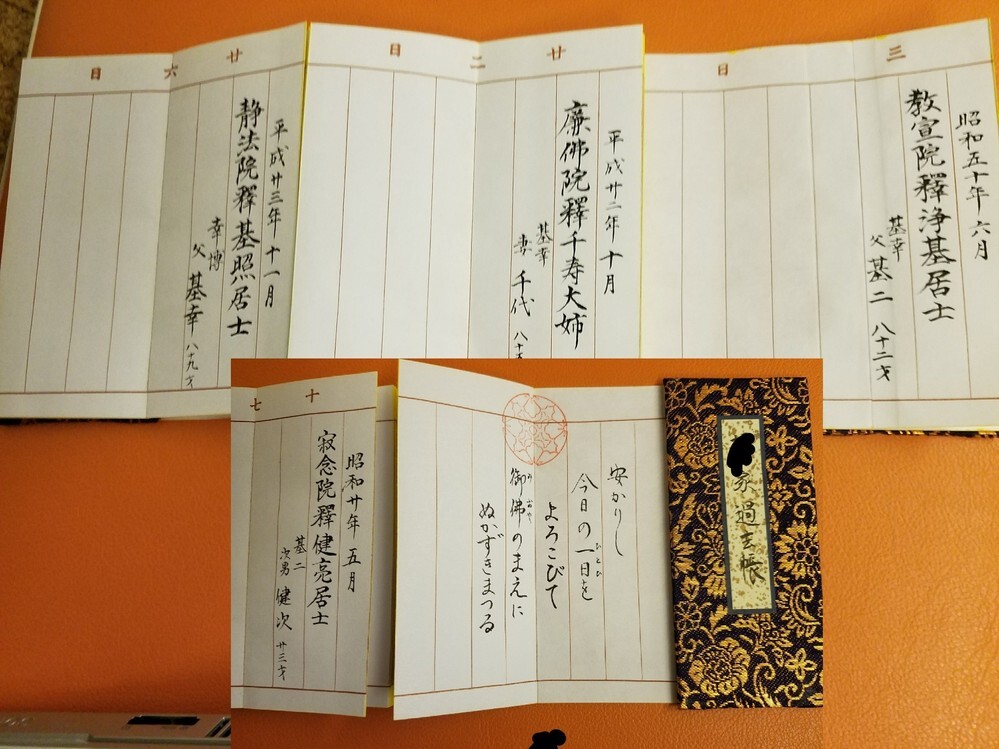 三日
昭和五十年六月
教宣院釋浄基居士
基幸
父 基二 八十二才
廿二日
平成廿二年十月
廉佛院釋千寿大姉
基幸
妻 千代 八十
廿六日
平成廿三年十一月
静法院釋基照居士
幸博
父 基幸 八十九才
家過去帳
安かりし
今日の一日を
ひとひ
よろこびて
御佛のまえに
みおや
ぬかずきまつる
十七
昭和廿年五月
寂念院釋健亮居士
基二
次男 健次 廿三才